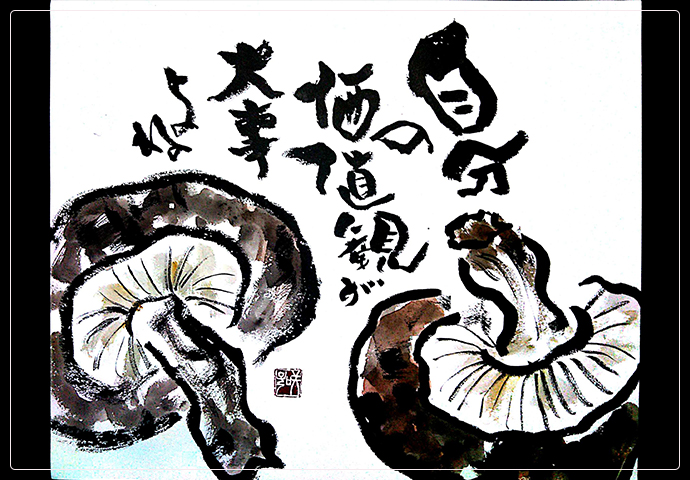 自分
の
価値観が
大事
よね